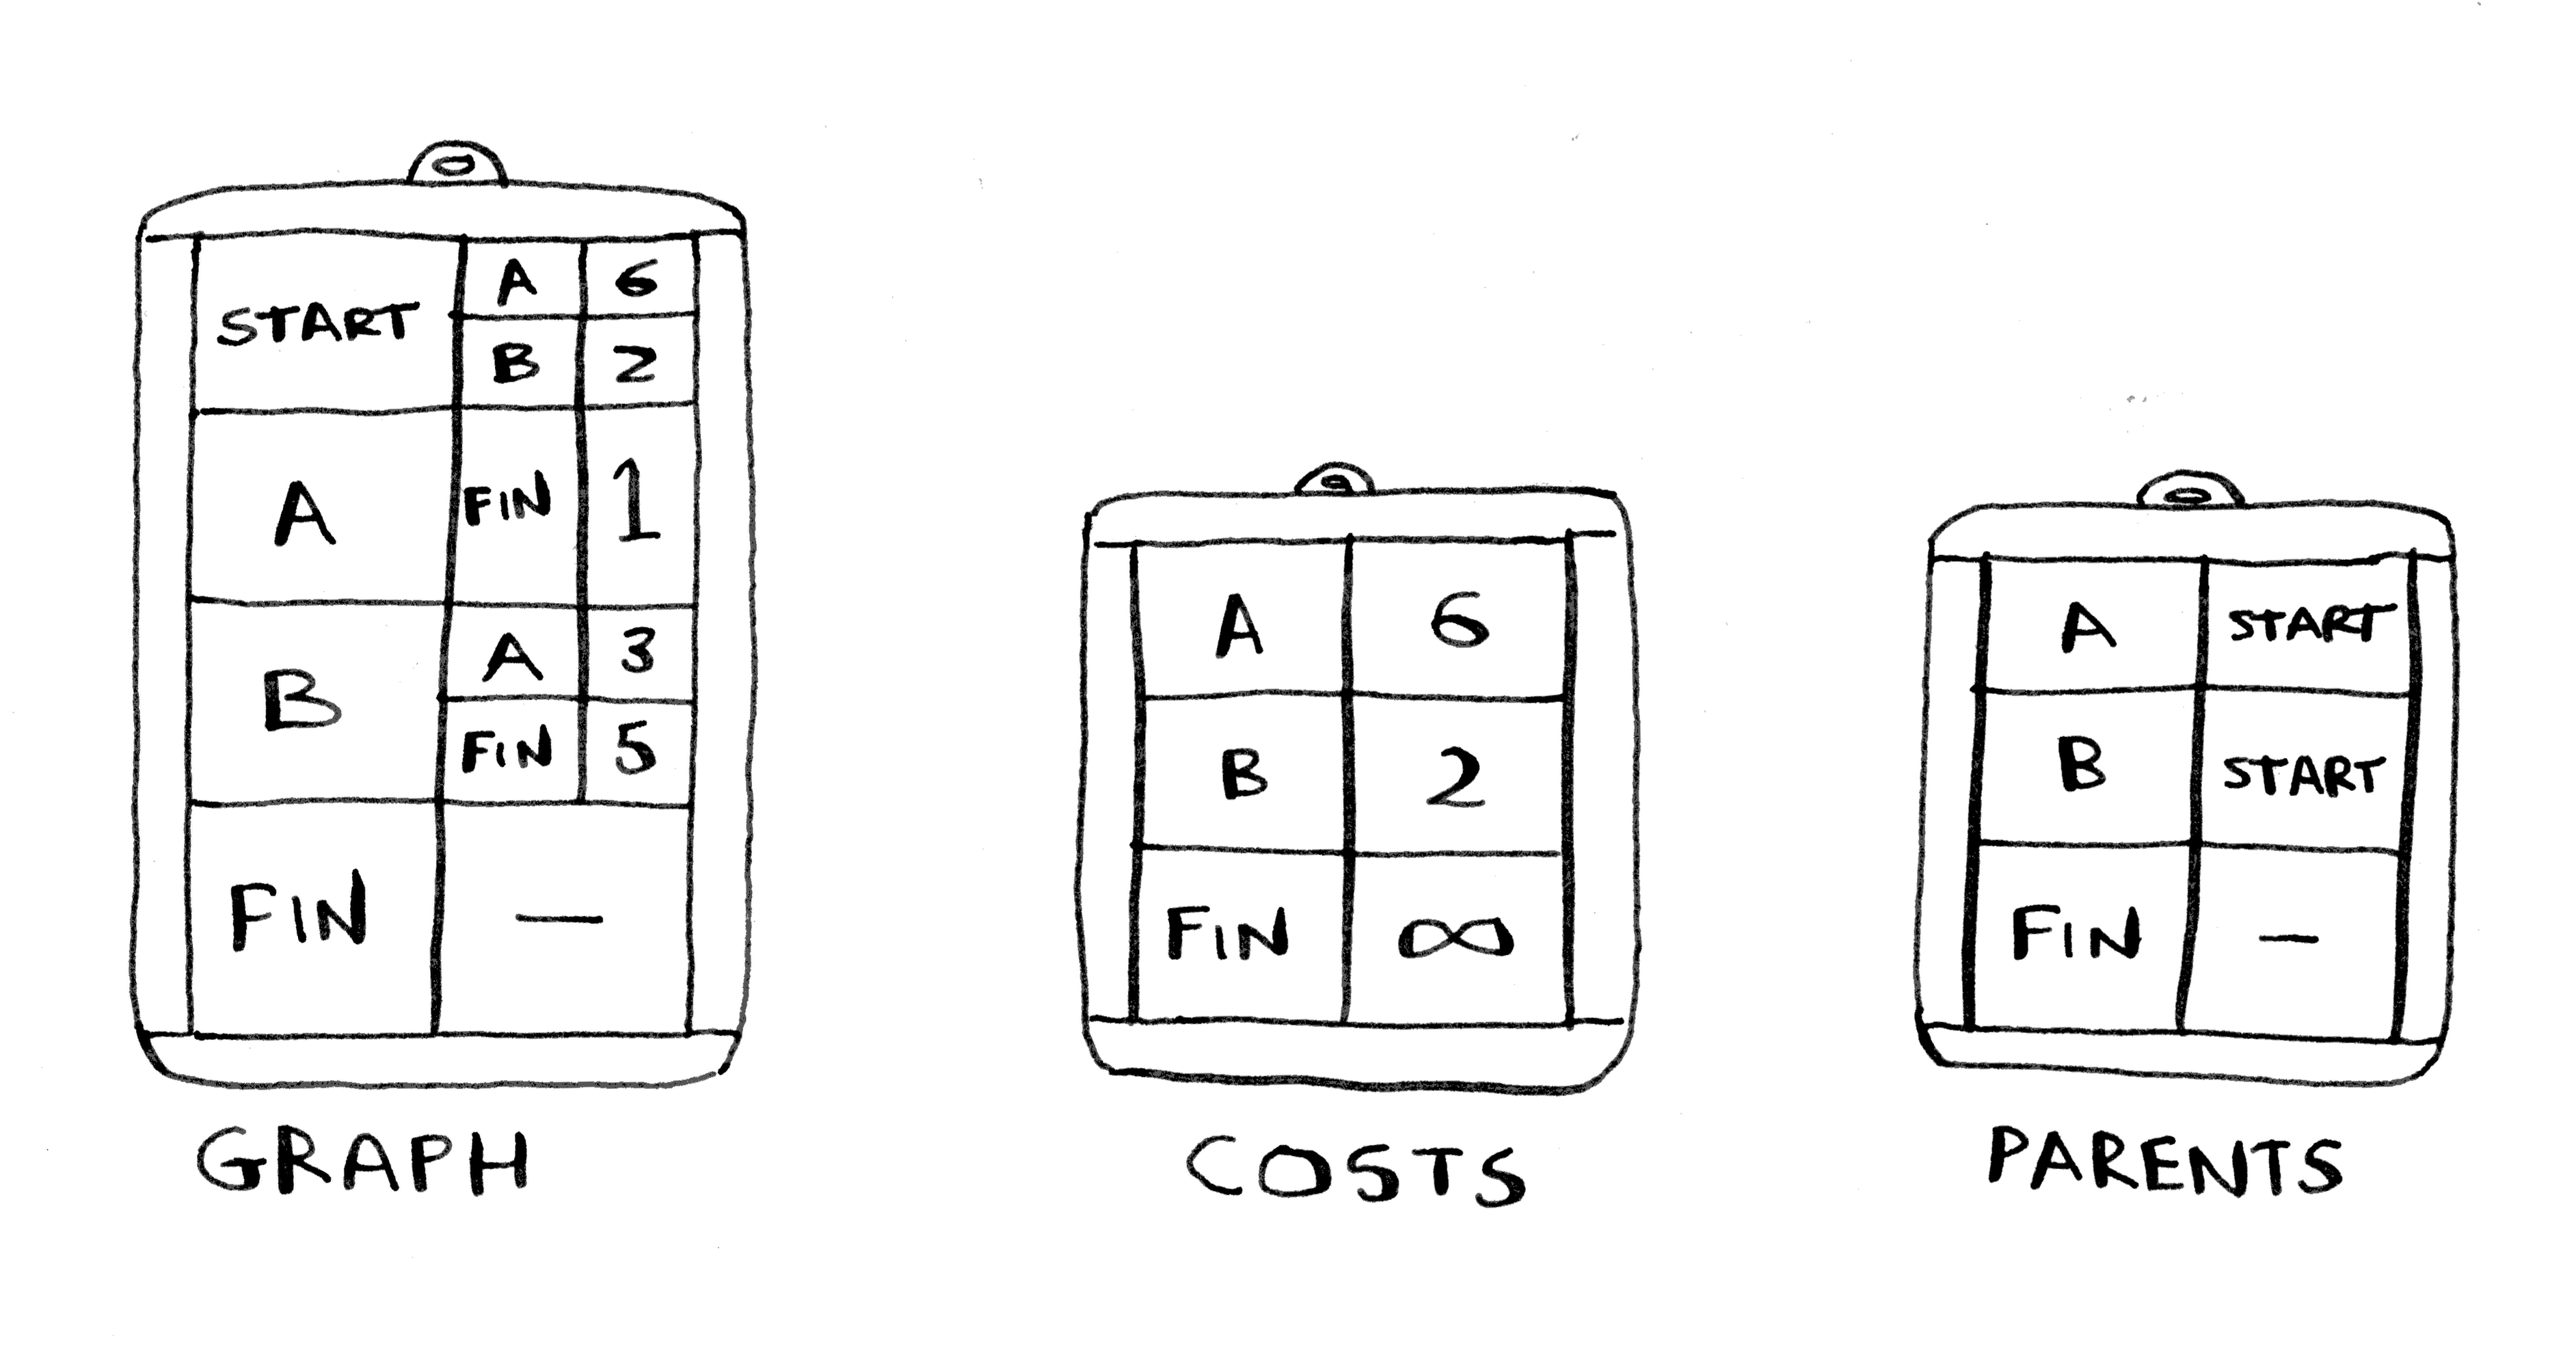 START A 6
B 2
A FIN 1
B A 3
FIN 5
FIN —
GRAPH
A 6
B 2
FIN ∞
COSTS
A START
B START
FIN —
PARENTS